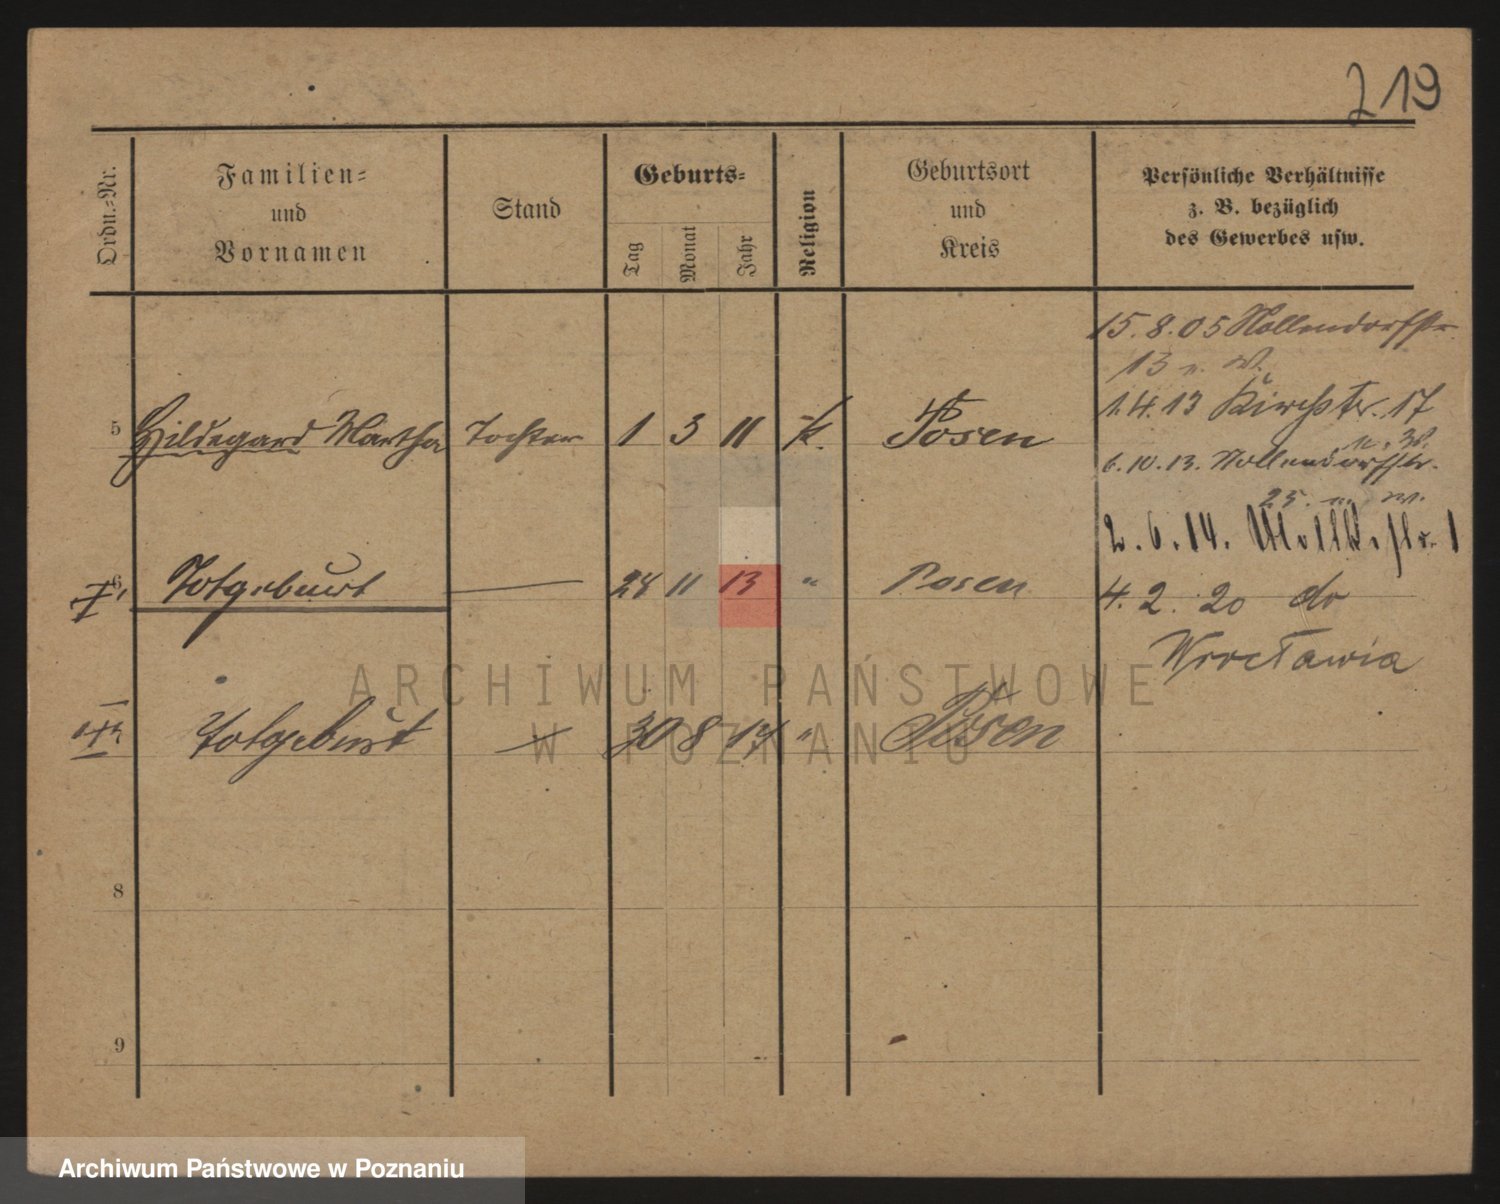 219
Ordn.-Nr.
Familien-
und
Vornamen
Stand
Geburts-
Tag
Monat
Jahr
Religion
Geburtsort
und
Kreis
Persönliche Verhältnisse
z. B. bezüglich
des Gewerbes usw.
15.8.05 Nollendorfstr
13 u. W.
5 Hildegard Martha Tochter 1 3 11 k. Posen
1.4.13 Kirchstr. 17
u. W.
6.10.13. Nollendorfstr.
25. u. w.
2.6.14. 1
6. Totgeburt — 28 11 13 " Posen
4. 2. 20 do
Wrocławia
Totgeburt 30 8 17 " Posen
8
9
ARCHIWUM PAŃSTWOWE
W POZNANIU
Archiwum Państwowe w Poznaniu